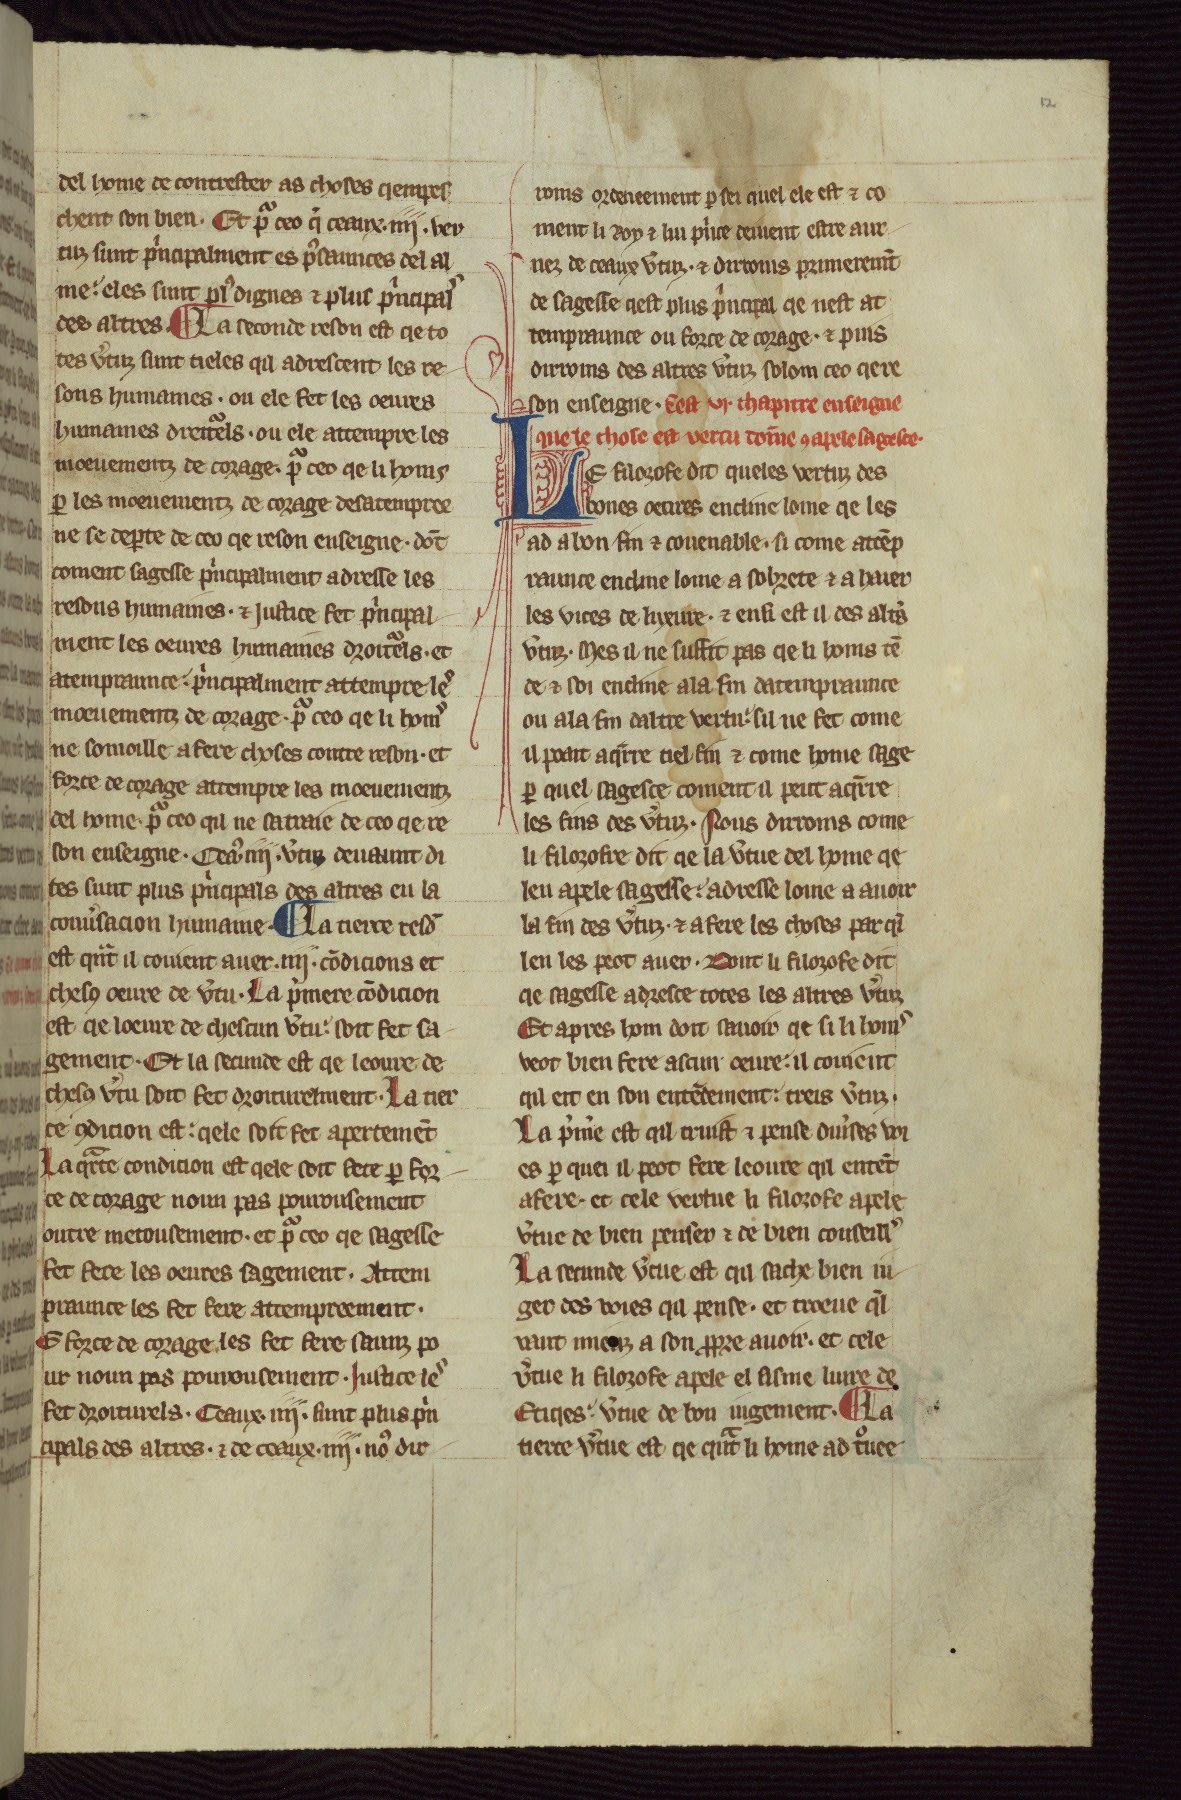 12
del home de contrester as choses qempes
chent son bien. Et pͣ ceo q̄ ceaux .iiii. ver
tuz sunt p̍ncipalment es p̍saunces del al
me: eles sunt pl᾿ dignes ⁊ plus p̍ncipal᾿
des altres. La seconde reson est qe to
tes v̓tuz sunt tieles qil adrescent les re
sons humaines. ou ele fet les oeures
humaines dreitͣels. ou ele attempre les
moeuementz de corage. pͣ ceo qe li homs
ꝑ les moeuementz de corage desatempree
ne se deꝑte de ceo qe reson enseigne. dōt
coment sagesse p̍ncipalment adresse les
resons humaines. ⁊ Justice fet p̍ncipal
ment les oeures humaines droitͣels. et
atempraunce: p̍ncipalment attempre le᾿
moeuementz de corage. pͣ ceo qe li hom᾿
ne somoille a fere choses contre reson. et
force de corage attempre les moeuementz
del home. pͣ ceo qil ne satraie de ceo qe re
son enseigne. Cea᾿ .iiii. v̓tuz deuaunt di
tes sunt plus p̍ncipals des altres en la
conu̓sacion humaine. La tierce resō
est qͣt il couient auer .iiii. cōdicions et
chesꝯ oeure de v̓tu. La p̍mere cōdicion
est qe loeure de chescun v̓tu: soit fet sa
gement. Et la secunde est qe leoure de
chesꝯ v̓tu soit fet droiturelment. La tier
ce ꝯdicion est: qele soit fet apertemēt
La qͣrte condicion est qele soit fete ꝑ for
ce de corage noun pas pourousement
outre metousement. et pͣ ceo qe sagesse
fet fere les oeures sagement. Attem
praunce les fet fere attempreement.
E force de corage les fet fere saunz po
ur noun pas pourousement. Justice le᾿
fet droiturels. Ceaux .iiii. sunt plus p̍n
cipals des altres. ⁊ de ceaux .iiii. no᾿ dir
roms ordeneement ꝑ sei quel ele est ⁊ co
ment li Roy ⁊ lui p̍nce deiuent estre aur
nez de ceaux v̓tuz. ⁊ dirroms primeremēt
de sagesse qest plus p̍ncipal qe nest at
tempraunce ou force de corage. ⁊ puis
dirroms des altres v̓tuz solom ceo qe re
son enseigne. Cest vj. chapitre enseigne
que le chose est vertu come ꝯ apele sagesce.
LE filozofe dit queles vertuz des
bones oeures encline lome qe les
ad a bon fin ⁊ couenable. si come attēp
raunce encline lome a sobrete ⁊ a haier
les vices de luxure. ⁊ ensi est il des alt̓s
v̓tuz. Mes il ne suffit pas qe li homs tē
de ⁊ soi encline ala fin datempraunce
ou ala fin daltre vertu: sil ne fet come
il poait aq̄rre tiel fin ⁊ come home sage
ꝑ quel sagesce coment il peut aq̄rre
les fins des v̓tuz. Nous dirroms come
li filozofre dit qe la v̓tue del home qe
leu apele sagesse: adresse lome a auoir
la fin des v̓tuz. ⁊ a fere les choses par q̄l
leu les peot auer. Dont li filozofe dit
qe sagesse adresce totes les altres v̓tuz
Et apres hom doit sauoir qe si li hom᾿
veot bien fere ascun oeure: il couient
qil eit en son entēdement: treis v̓tuz.
La p̍m̓e est qil truist ⁊ pense diu̓ses voi
es ꝑ quei il peot fere leoure qil entēt
a fere. et cele vertue li filozofe apele
v̓tue de bien penser ⁊ de bien conseill᾿
La secunde v̓tue est qil sache bien iu
ger des voies qil pense. et troeue q̄l
vaut mieuz a son ꝓpre auoir. et cele
v̓tue li filozofe apele el sisme liure de
Etiqes: v̓tue de bon iugement. La
tierce v̓tue est qe qͣt li home ad t̓uee